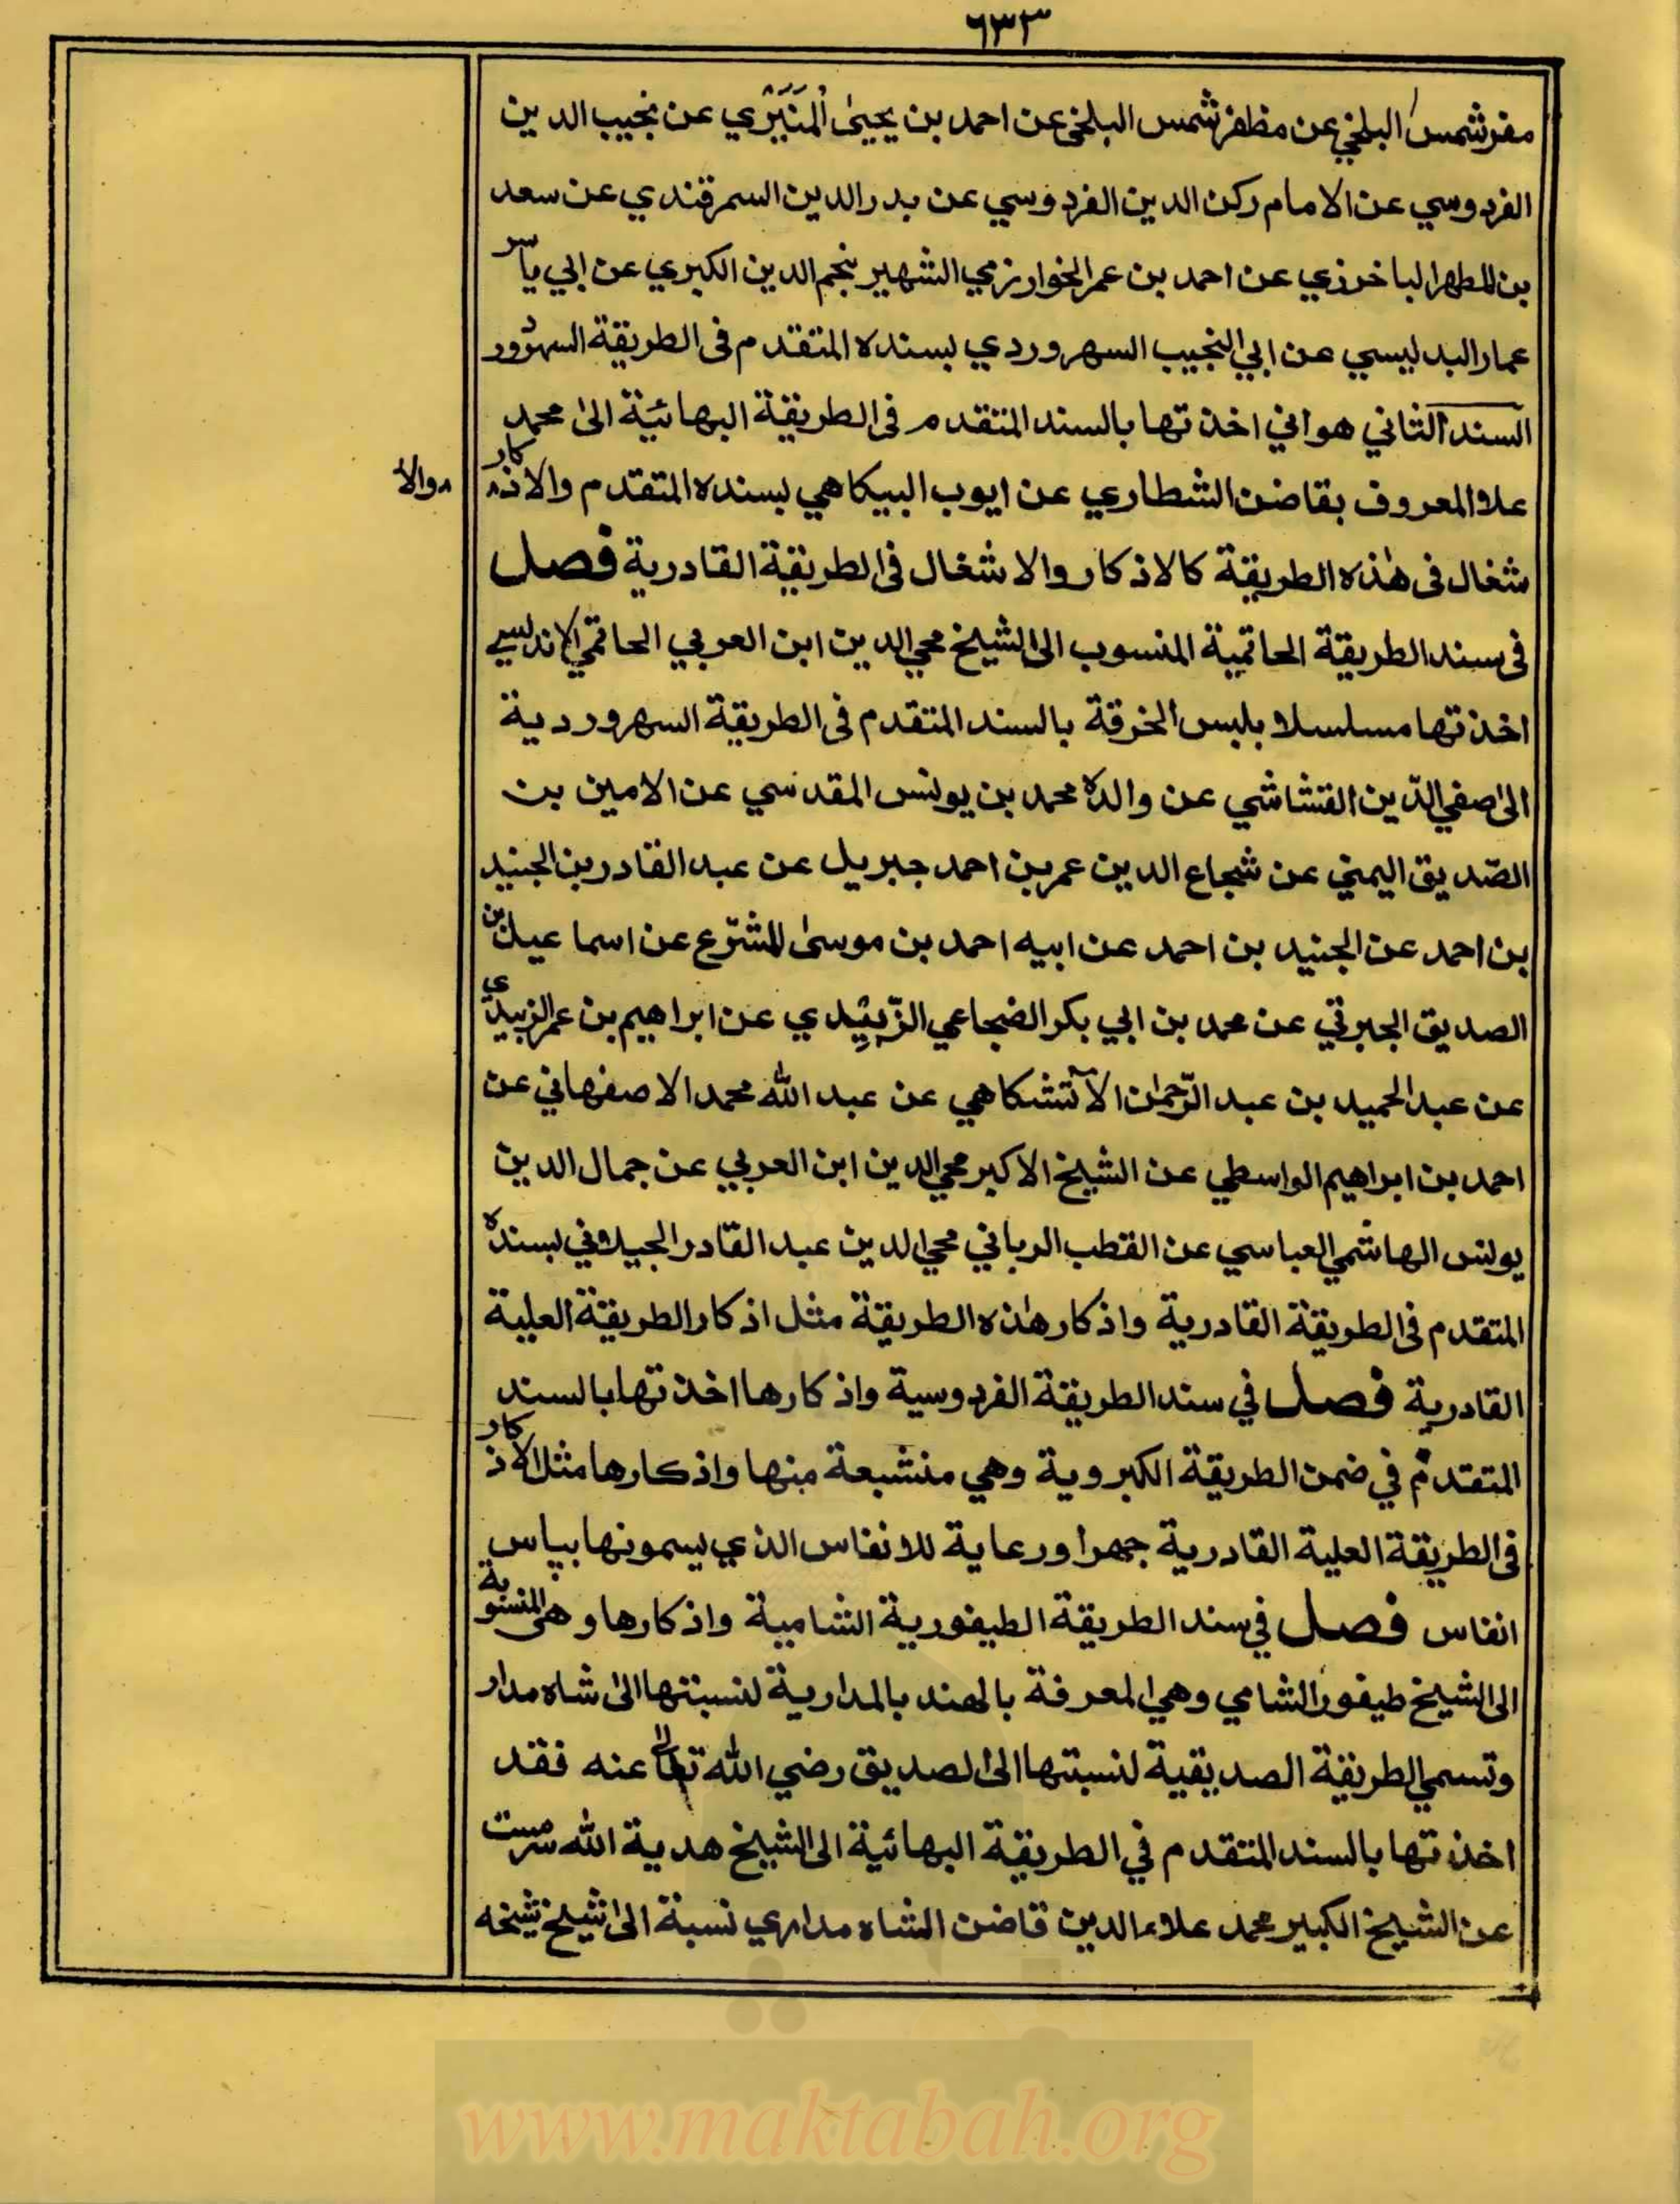 ٦٣٣
مفر شمس البلخي عن مظفر شمس البلخي عن احمد بن يحيىٰ المَنَيْرَي عن نجيب الدين
الفردوسي عن الامام ركن الدين الفردوسي عن بدر الدين السمرقندي عن سعد
بن المطهر الباخرزي عن احمد بن عمر الخوارزمي الشهير بنجم الدين الكبري عن ابي ياسر
عمار البدليسي عن ابي النجيب السهروردي بسنده المتقدم في الطريقة
السند الثاني هو اني اخذتها بالسند المتقدم في الطريقة البهائية الى محمد
علا المعروف بقاضن الشطاري عن ايوب البيكاهي بسنده المتقدم والاذكار
والا
شغال في هٰذه الطريقة كالاذكار والاشغال في الطريقة القادرية فصل
في سند الطريقة الحاتمية المنسوب الى الشيخ محي الدين ابن العربي الحاتمي الاندلسي
اخذتها مسلسلا بلبس الخرقة بالسند المتقدم في الطريقة السهروردية
الى صفي الدّين القشاشي عن والده محمد بن يونس المقدسي عن الامين بن
الصّديق اليمني عن شجاع الدين عمر بن احمد جبريل عن عبد القادر بن الجنيد
بن احمد عن الجنيد بن احمد عن ابيه احمد بن موسىٰ المشرّع عن اسماعيل بن
الصديق الجبرتي عن محمد بن ابي بكر الضجاعي الزّبيدي عن ابراهيم بن عمر الزبيدي
عن عبد الحميد بن عبد الرّحمٰن عن عبد الله محمد الاصفهاني عن
احمد بن ابراهيم الواسطي عن الشيخ الاكبر محي الدين ابن العربي عن جمال الدين
يونس الهاشمي العباسي عن القطب الرباني محي الدين عبد القادر الجيلاني بسنده
المتقدم في الطريقة القادرية واذكار هٰذه الطريقة مثل اذكار الطريقة العلية
القادرية فصل في سند الطريقة الفردوسية واذكارها اخذتها بالسند
المتقدم في ضمن الطريقة الكبروية وهي منشبعة منها واذكارها مثل الاذكار
في الطريقة العلية القادرية جهرا ورعاية للانفاس الذي يسمونها بپاس
انفاس فصل في سند الطريقة الطيفورية الشامية واذكارها وهي المنسوبة
الى الشيخ طيفور الشامي وهي المعرفة بالهند بالمدارية لنسبتها الىٰ شاه مدار
وتسمي الطريقة الصديقية لنسبتها الىٰ الصديق رضي الله تعالىٰ عنه فقد
اخذتها بالسند المتقدم في الطريقة البهائية الى الشيخ هدية الله سرمست
عن الشيخ الكبير محمد علاء الدين قاضن الشاه مداري نسبة الىٰ شيخ شيخه
www.maktabah.org